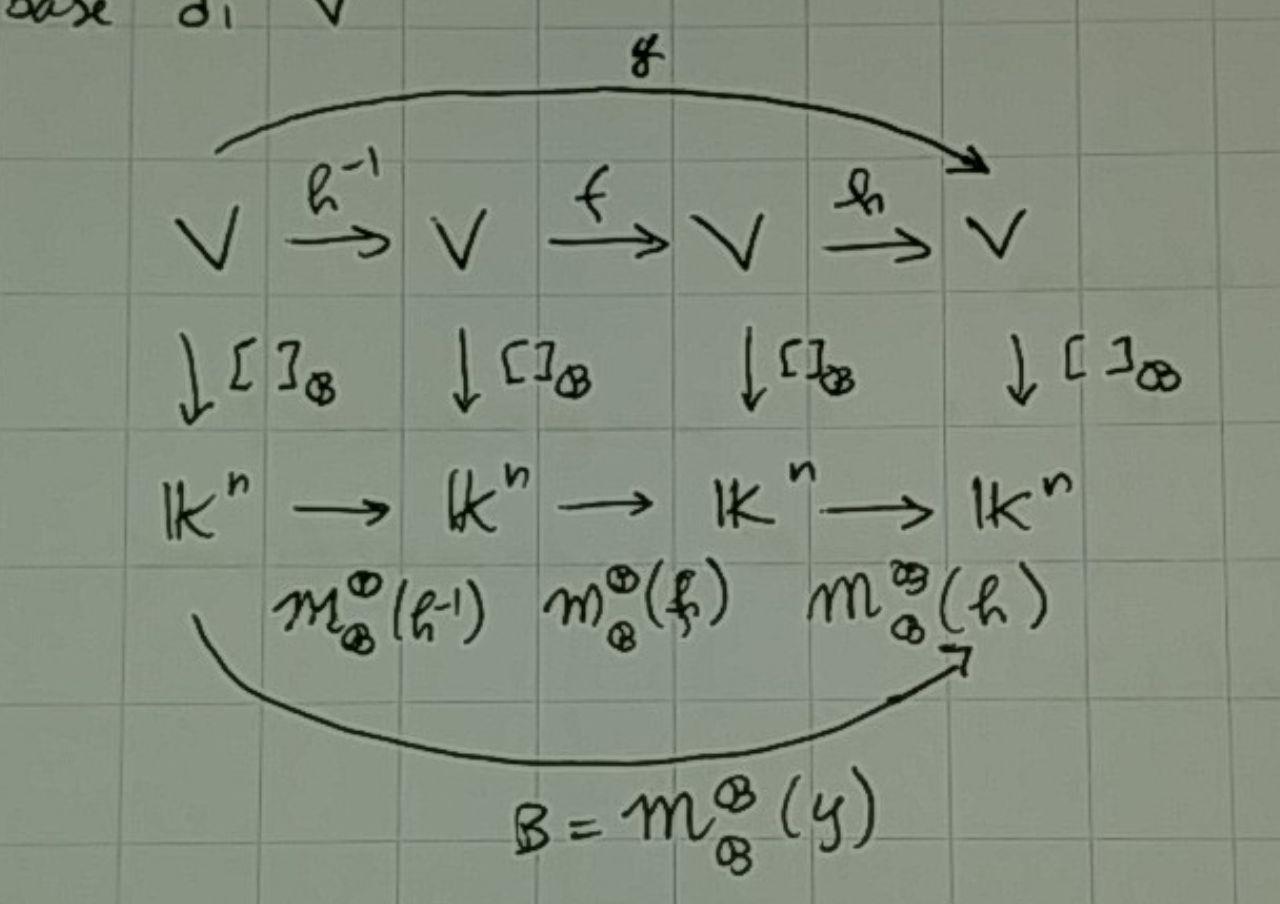 base di V
g
V h⁻¹ → V f → V h → V
↓ [ ]_B ↓ [ ]_B ↓ [ ]_B ↓ [ ]_B
𝕂ⁿ → 𝕂ⁿ → 𝕂ⁿ → 𝕂ⁿ
m_B^B(h⁻¹) m_B^B(f) m_B^B(h)
B = m_B^B(g)